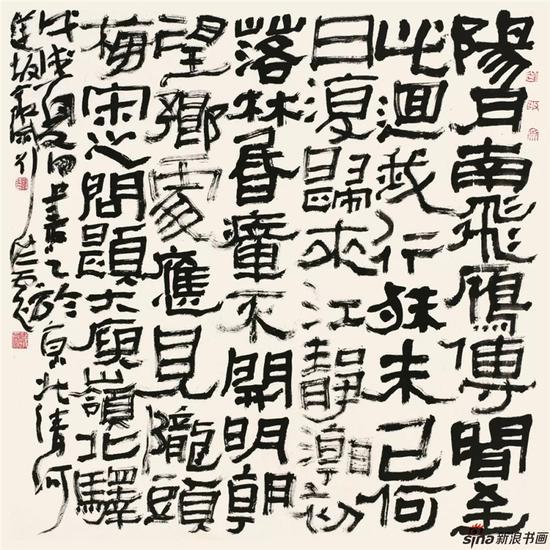 陽月南飛鴈傳聞至
此迴我行殊未已何
日復歸來江靜潮初
落林昏瘴不開明朝
望鄉處應見隴頭
梅宋之問題大庾嶺北驛
戊戌夏 於京北清河
sina新浪书画